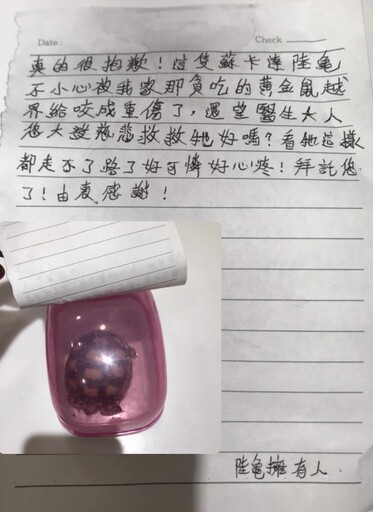 Date:
Check
真的很抱歉！這隻蘇卡達陸龜
不小心被我家那貪吃的黃金鼠越
界給咬成重傷了，還望醫生大人
您大發慈悲救救牠好嗎？看牠這樣
都走不了路了好可憐好心疼！拜託您
了！由衷感謝！
陸龜擁有人.